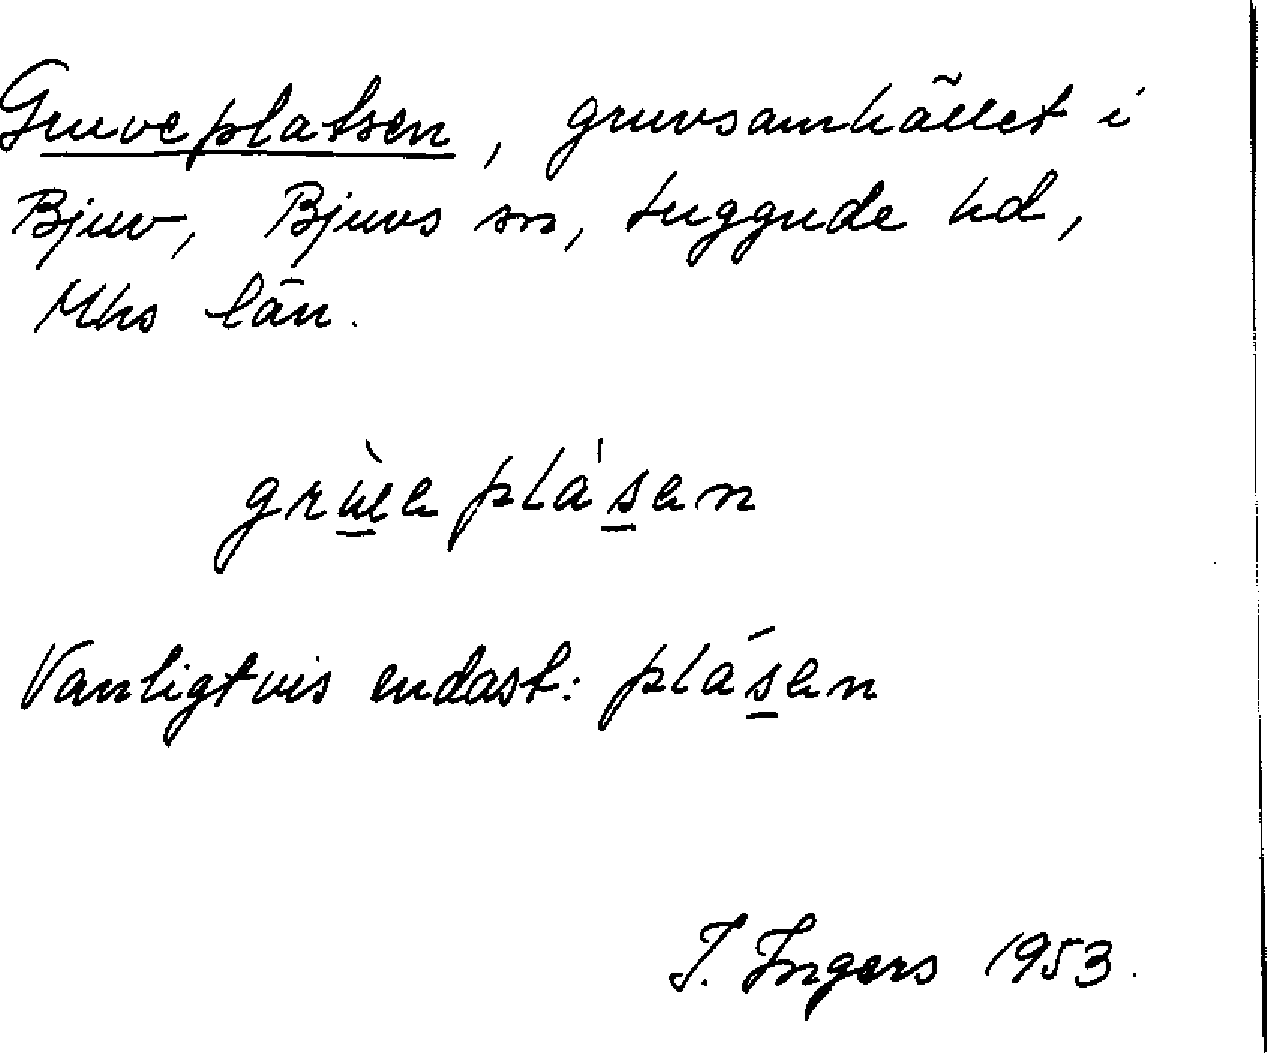 Gruveplatsen, gruvsamhället i
Bjuv, Bjuvs sn, Luggude hd,
Mhs län.
Vanligtvis endast: plásen
I. Ingers 1953.